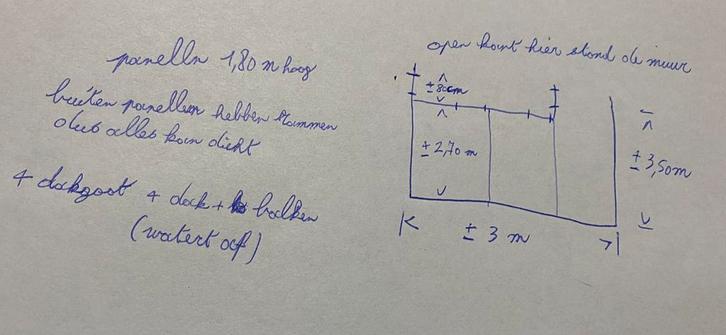 open kant hier stond de muur
panelln 1,80 m hoog
± 80cm
buiten panellen hebben rammen
dus alles kan dicht
± 2,70 m
± 3,50m
+ dackgoot + dack + balken
(watert af)
± 3 m